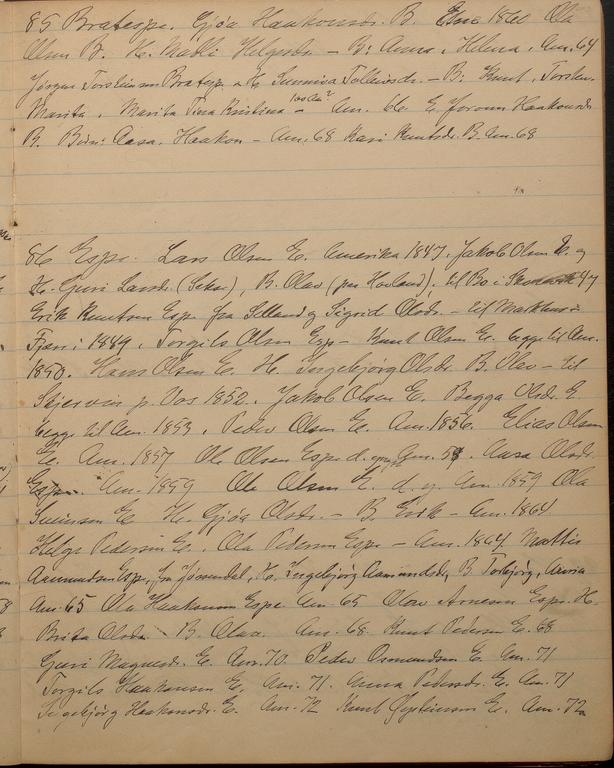 85 Bratespe. Gjøa Haakonsdr. B. Elne 1860 Ola
Olsen B. H. Matli Helgesdr. - B: Anna, Helena, Am. 64
Jørgen Torsteinson Bratesp. & H. Sunniva Tolleivsdr. - B: Knut, Torstein
Marita, Marita Tina Kristina - Am. 66 E. Joronn Haakonsdr
B. Born: Aasa, Haakon - Am. 68 Kari Knutsdr. B. Am. 68
86 Espe. Lars Olsen E. Amerika 1847. Jakob Olsen E. og
H. Guri Larsdr. (Sekse), B. Olav (paa Hovland), til Bo i 47
Erik Knutsen Espe fra Selland og Sigrid Olsdr. - til
Fjæri 1849, Torgils Olsen Esp - Knut Olsen E. begge til Am.
1850. Hans Olsen E. H. Ingebjørg Olsdr. B. Olav - til
Skjervin p. Vos 1852. Jakob Olsen E. Begga Olsdr. E.
begge til Am. 1853. Peder Olsen E. Am. 1856. Elias Olsen
E. Am. 1857 Ole Olsen Espe d. yngre Am. 58. Aasa Olsdr.
Espe. Am. 1859 Ole Olsen E. d. y. Am. 1859 Ola
E. H. Gjøa Olsdr. - B. Erik - Am. 1864
Helge Pedersen E., Ola Pedersen Espe - Am. 1864 Mattis
Aamundsen Espe, fra Jøsendal, H. Ingebjørg Aamundsdr, B Torbjørg, Anna
Am. 65 Ola Haakonson Espe Am. 65 Olav Arneson Espe. H.
Brita Olsdr. B. Olav. Am. 68. Knut Pedersen E. 68
Guri Magnesdr. E. Am. 70. Peder Osmundsen E. Am. 71
Torgils Haakonsen E. Am. 71. Anna Pedersdr. E. Am. 71
Ingebjørg Haakonsdr. E. Am. 72 Knut Øysteinson E. Am. 72